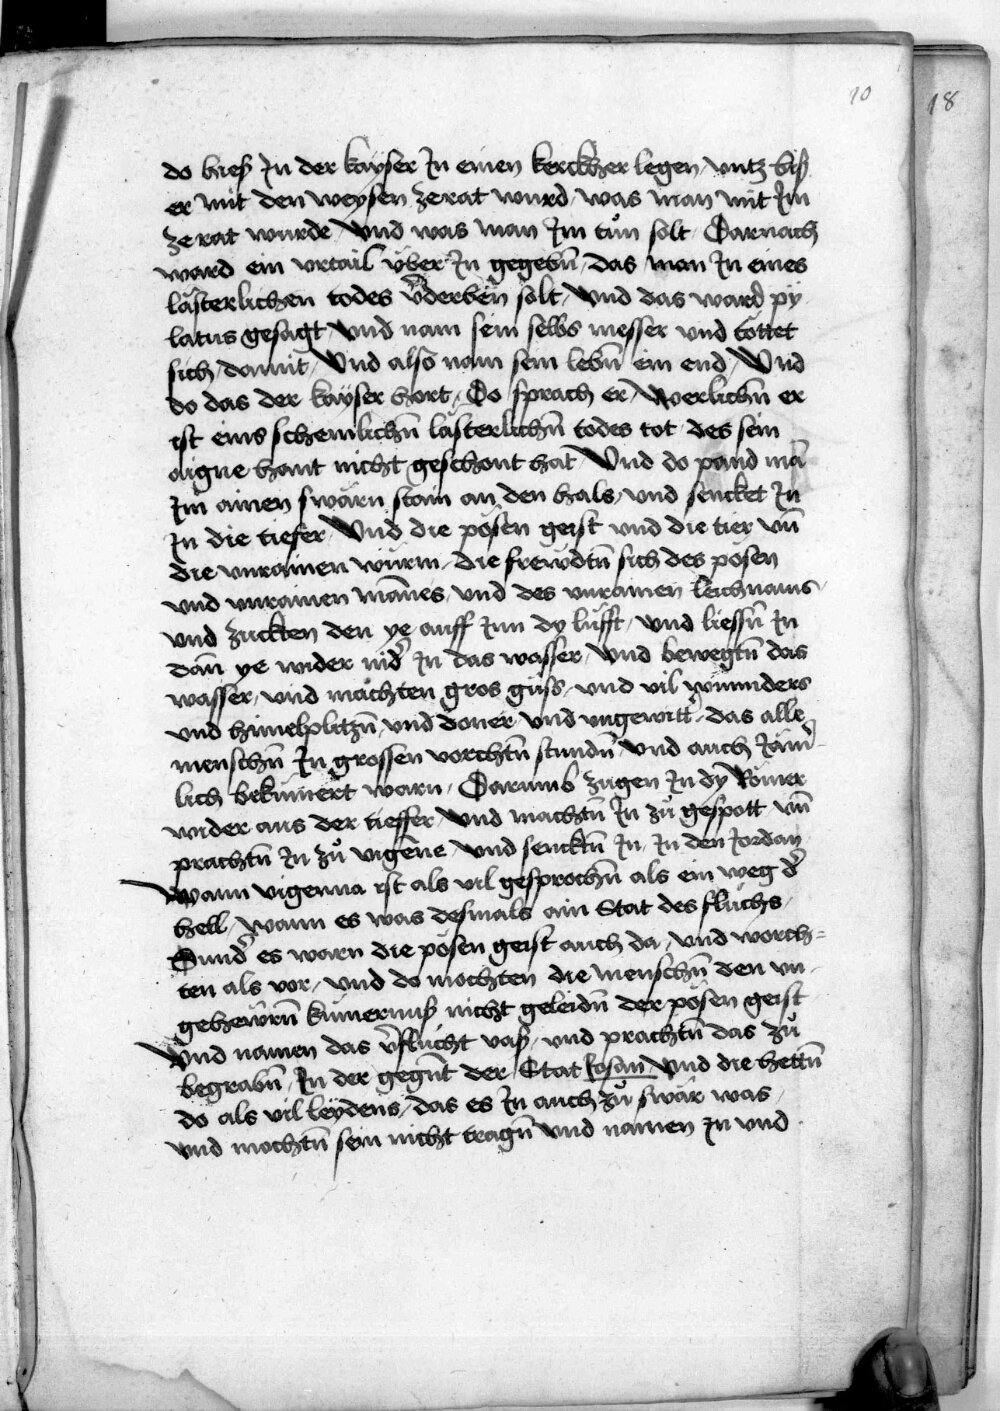 10
18
do hieß In der kayser In einen kerckher legen / vntz biß
er mit den weysen ze rat wurd / was man mit Im
ze rat wurde / Vnd was man Im tůn solt / Darnach
ward ein vrtail vͤber In gegebn̄ / das man In eines
lästerlichen todes v̄derben solt / Vnd das ward py
latus gesagt / Vnd nam sein selbs messer vnd tottet
sich damit / Vnd also nam sein lebn̄ ein end / Vnd
do das der kayser hort / Do sprach er / Werlichn̄ er
ist eins schemlichn̄ lästerlichn̄ todes tot / des sein
aigne hant nicht geschont hat / Vnd do pand mā
Im ainen swärn stain an den hals / vnd sencket In
In die tiefer / Vnd die pösen geist vnd die tier vn̄
die vnrainen würm / die frewdtn̄ sich des pösen
vnd vnrainen mānes / vnd des vnrainen leichnams /
vnd zuckten den ye auff Inn dy lüfft / vnd liessn̄ In
dan̄ ye wider nid' In das wasser / Vnd bewegtn̄ das
wasser / vnd mächten gros güss / vnd vil wunnders
vnd himelplitzn̄ / vnd doner vnd vngewitt' / das alle
menschn̄ In grossen vorchtn̄ stundn̄ / Vnd auch Jäm'
lich bekümert warn / Darumb zugen In dy Römer
wider aus der tieffer / Vnd machtn̄ In zů gespott vn̄
prachtn̄ In zů vigene / Vnd sencktn̄ In / In den Jordan
Wann vigenna ist als vil gesprochn̄ als ein weg d'
hell / wann es was desmals ain Stat des fluchs /
Sund' es warn die pösen geist auch da / vnd worch=
ten als vor / vnd do mochten die menschn̄ den vn
gehewrn̄ kümernuß nicht geleidn̄ der pösen geist
Vnd namen das v̄flücht vaß / vnd prachtn̄ das zů
begrabn̄ / In der gegn̄t der Stat losan / Vnd die hettn̄
do als vil leydens / das es In auch zů swär was /
vnd mochtn̄ sein nicht tragn̄ vnd namen In vnd